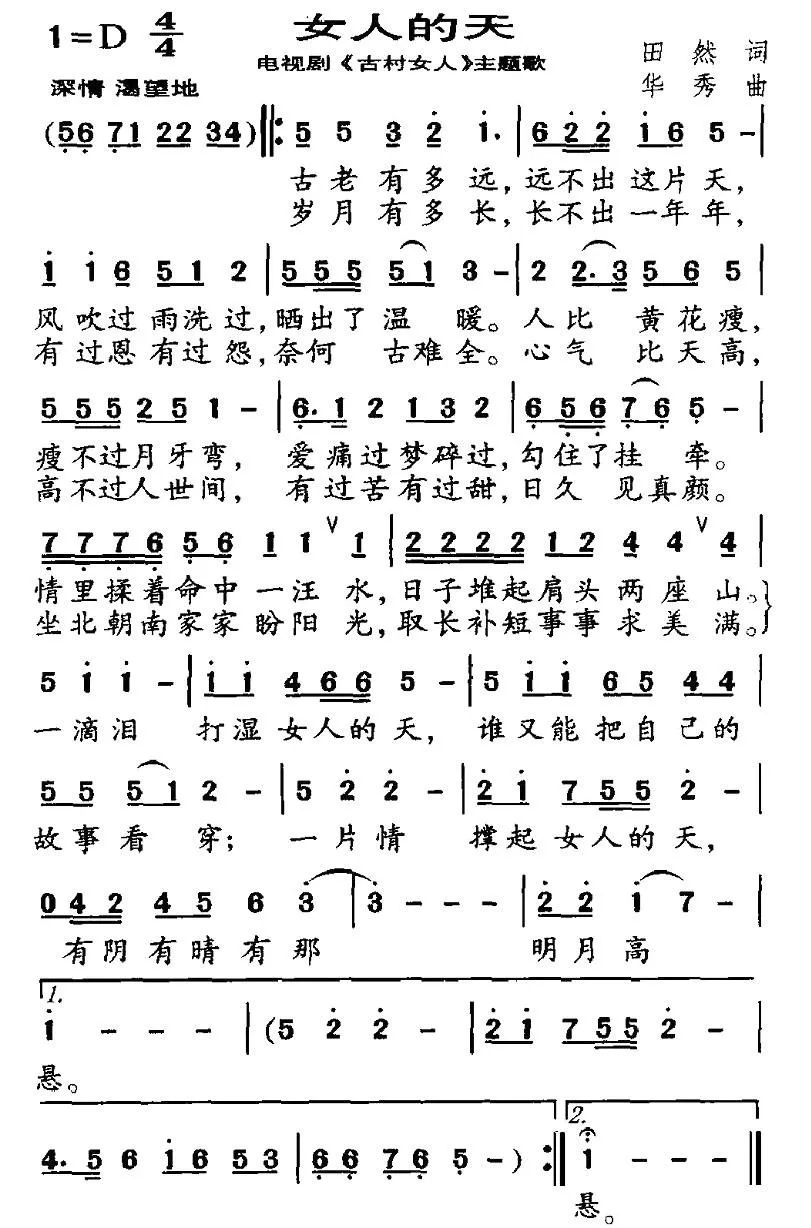 女人的天
1=D 4/4
电视剧《古村女人》主题歌
田然词
深情 渴望地
华秀曲
(56 71 22 34)‖: 5 5 3 2 1. | 6 2 2 1 6 5 - |
古老有多远,远不出这片天,
岁月有多长,长不出一年年,
1 1 6 5 1 2 | 5 5 5 5 1 3 - | 2 2. 3 5 6 5 |
风吹过雨洗过,晒出了温暖。人比黄花瘦,
有过恩有过怨,奈何古难全。心气比天高,
5 5 5 2 5 1 - | 6. 1 2 1 3 2 | 6 5 6 7 6 5 - |
瘦不过月牙弯,爱痛过梦碎过,勾住了挂牵。
高不过人世间,有过苦有过甜,日久见真颜。
7 7 7 6 5 6 1 1 ∨ 1 | 2 2 2 2 1 2 4 4 ∨ 4 |
情里揉着命中一汪水,日子堆起肩头两座山。
坐北朝南家家盼阳光,取长补短事事求美满。
5 1 1 - | 1 1 4 6 6 5 - | 5 1 1 6 5 4 4 |
一滴泪 打湿女人的天,谁又能把自己的
5 5 5 1 2 - | 5 2 2 - | 2 1 7 5 5 2 - |
故事看穿;一片情 撑起女人的天,
0 4 2 4 5 6 3 | 3 - - - | 2 2 1 7 - |
有阴有晴有那 明月高
1.
1 - - - | (5 2 2 - | 2 1 7 5 5 2 - |
悬。
2.
4. 5 6 1 6 5 3 | 6 6 7 6 5 -) :‖ 1 - - - ‖
悬。